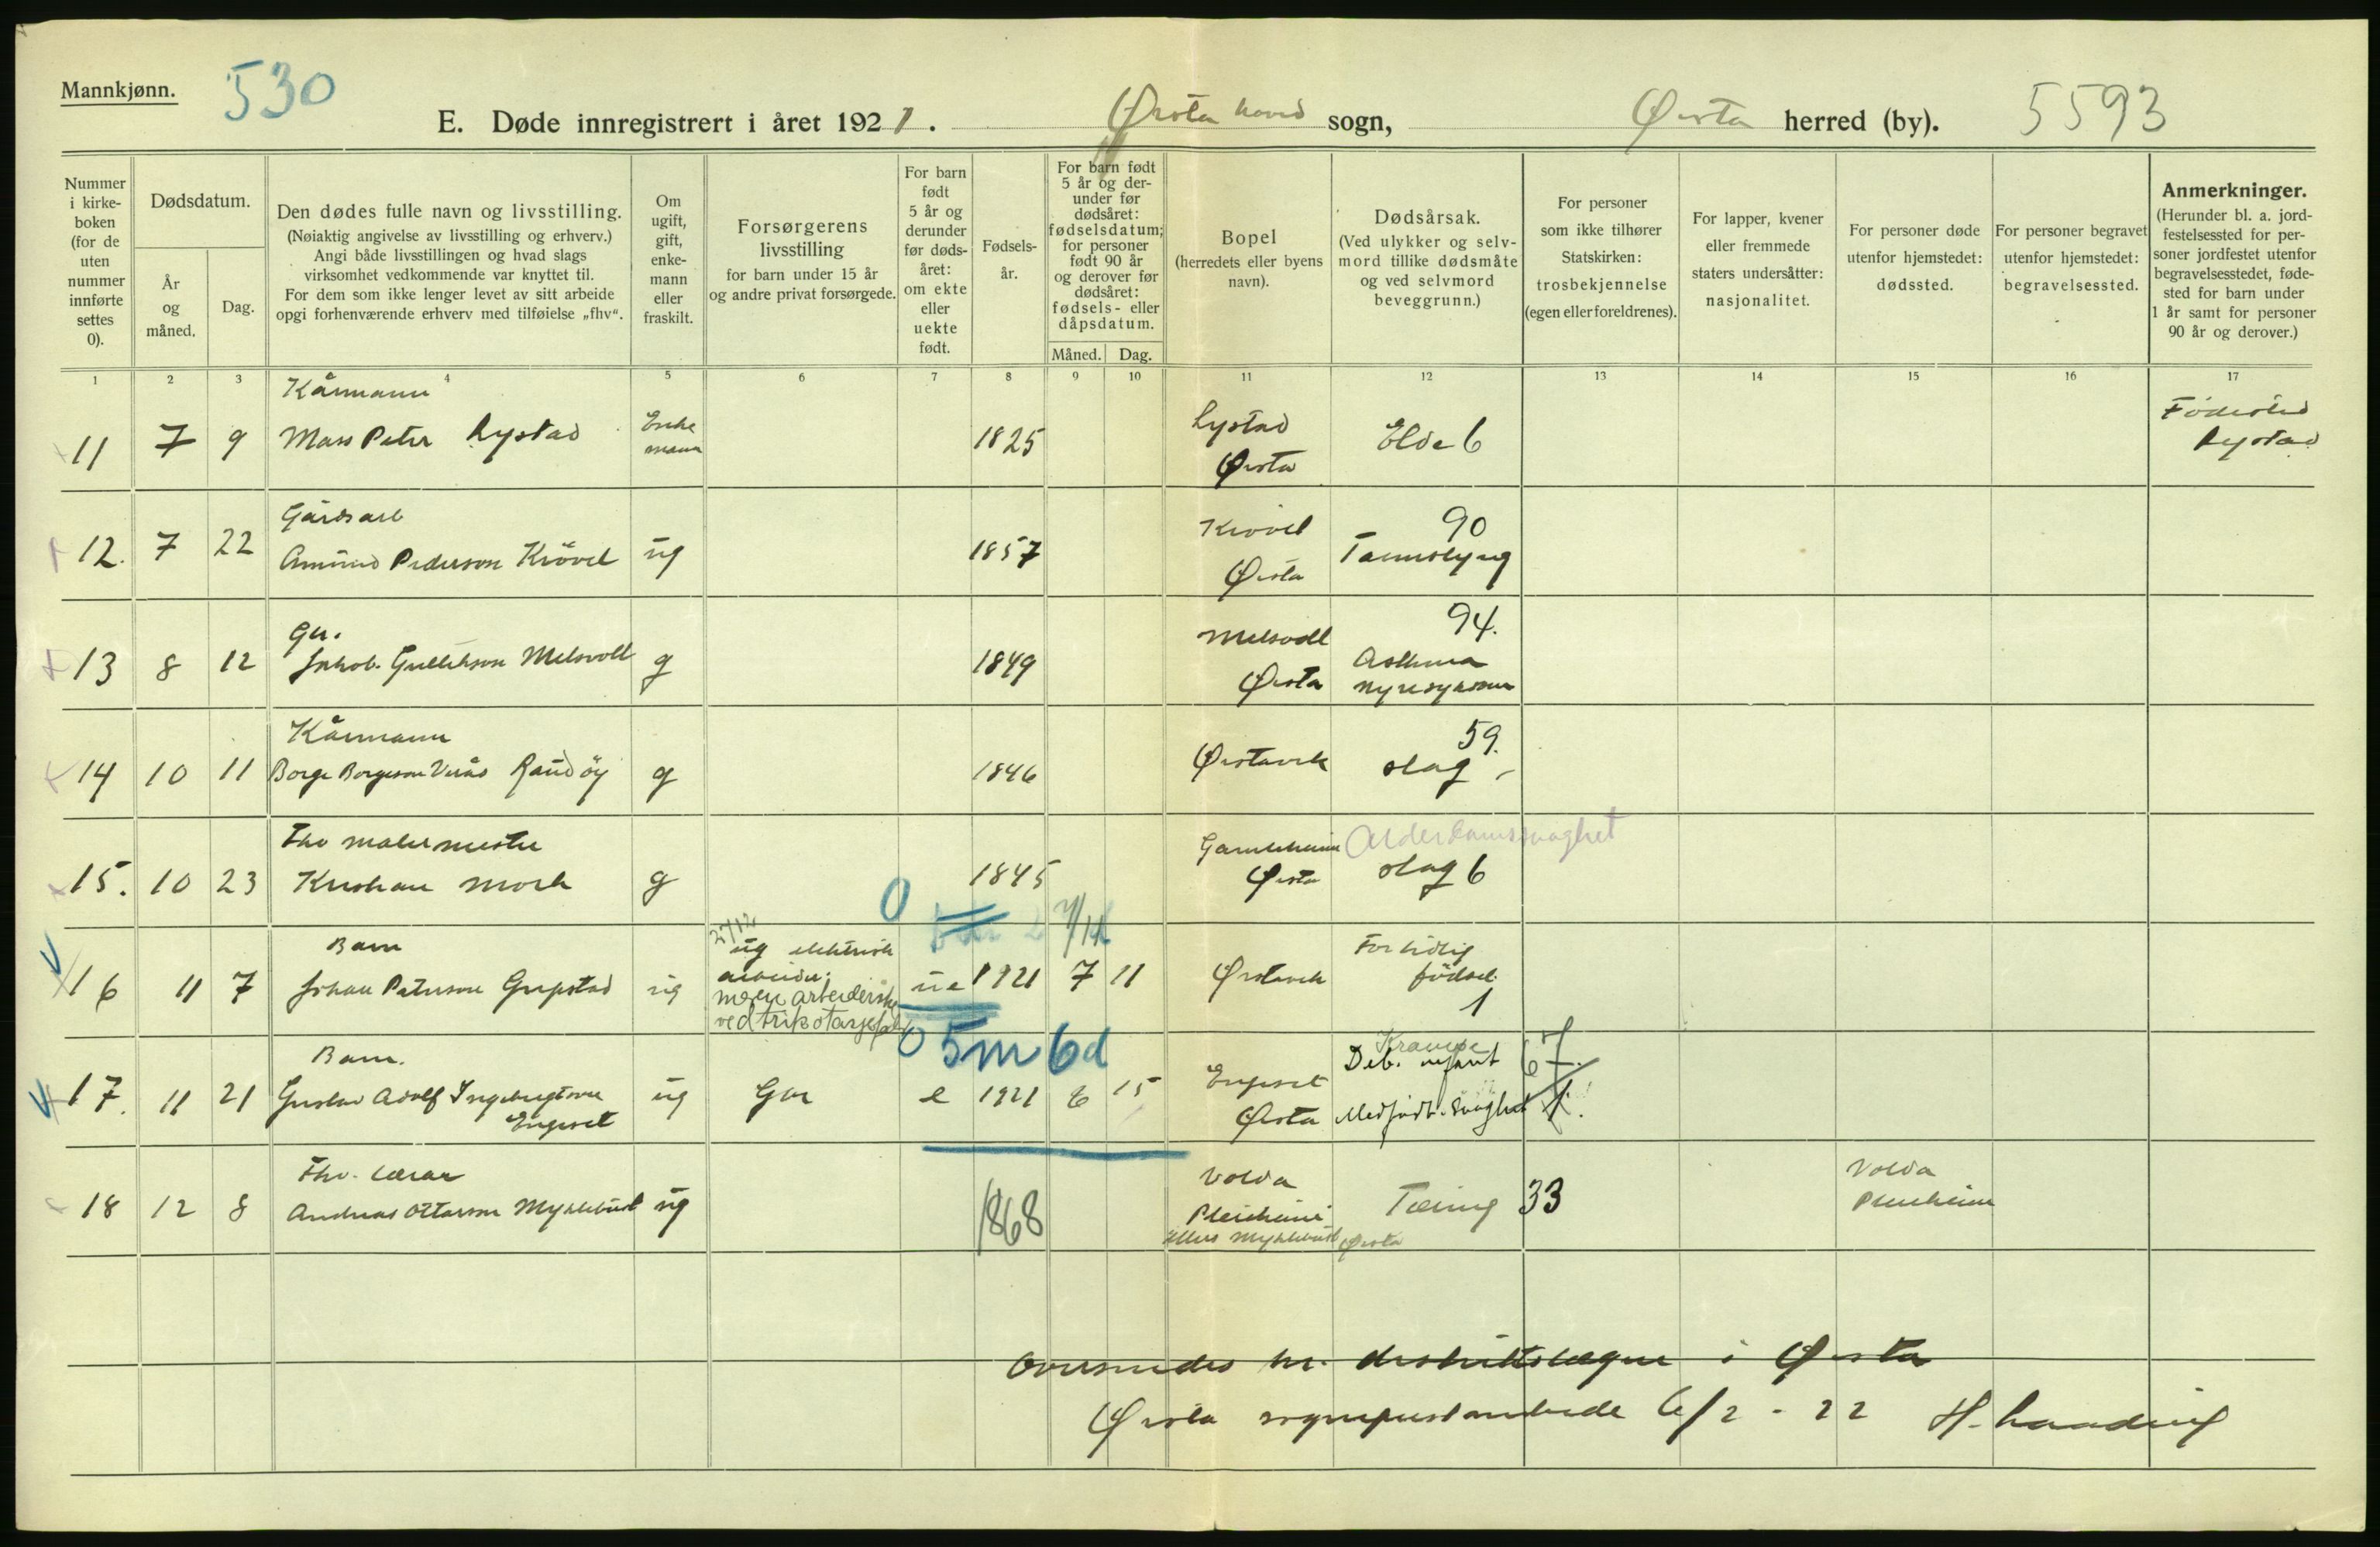 Mannkjønn.
530
E. Døde innregistrert i året 1921. Ørsta hovd sogn, Ørsta herred (by). 5593
Nummer i kirke-boken (for de uten nummer innførte settes 0).
Dødsdatum.
År og måned.
Dag.
Den dødes fulle navn og livsstilling.
(Nøiaktig angivelse av livsstilling og erhverv.)
Angi både livsstillingen og hvad slags
virksomhet vedkommende var knyttet til.
For dem som ikke lenger levet av sitt arbeide
opgi forhenværende erhverv med tilføielse „fhv“.
Om ugift, gift, enke-mann eller fraskilt.
Forsørgerens
livsstilling
for barn under 15 år
og andre privat forsørgede.
For barn født 5 år og derunder før døds-året: om ekte eller uekte født.
Fødsels-år.
For barn født 5 år og der-under før dødsåret: fødselsdatum; for personer født 90 år og derover før dødsåret: fødsels- eller dåpsdatum.
Måned. Dag.
Bopel
(herredets eller byens
navn).
Dødsårsak.
(Ved ulykker og selv-
mord tillike dødsmåte
og ved selvmord
beveggrunn.)
For personer
som ikke tilhører
Statskirken:
trosbekjennelse
(egen eller foreldrenes).
For lapper, kvener
eller fremmede
staters undersåtter:
nasjonalitet.
For personer døde
utenfor hjemstedet:
dødssted.
For personer begravet
utenfor hjemstedet:
begravelsessted.
Anmerkninger.
(Herunder bl. a. jord-
festelsessted for per-
soner jordfestet utenfor
begravelsesstedet, føde-
sted for barn under
1 år samt for personer
90 år og derover.)
1 2 3 4 5 6 7 8 9 10 11 12 13 14 15 16 17
Kårmann
11 7 9 Mass Peter Lystad Enke mann 1825 Lystad Ørsta Elde 6 Fødested Lystad
Gårdsarb
12. 7 22 Amund Pederson Krøvel ug 1857 Krøvel Ørsta 90 Tarmslyng
Gbr.
13 8 12 Jakob Gullikson Melsvoll g 1849 Melsvoll Ørsta 94. Asthma nyresykdom
Kårmann
14 10 11 Borge Borgeson Randøy g 1846 Ørstavik 59. slag
Fhv malermester
15. 10 23 Kristian Mork g 1845 Ørsta Alderdomssvaghet slag 6
Barn
16 11 7 Johan Peterson Gripstad ug 27/12 ug elektrisk arbeider; moren arbeiderske ved trikotasjefabr 0 ue 1921 7 11 Ørstavik For tidlig fødsel 1
Barn.
17. 11 21 Gustav Adolf Ingebrigtson Engeset ug Gbr 0 5m 6d e 1921 6 15 Engeset Ørsta Krampe Deb. infant 67. Medfødt svaghet 1.
Fhv. lærar
18 12 8 Andreas Ottarson Myklebust ug 1868 Volda Pleieheim ellers Myklebust Ørsta Tæring 33 Volda Pleieheim
Oversendes hr. distriktslægen i Ørsta
Ørsta sogneprestembede 6/2 - 22 H.